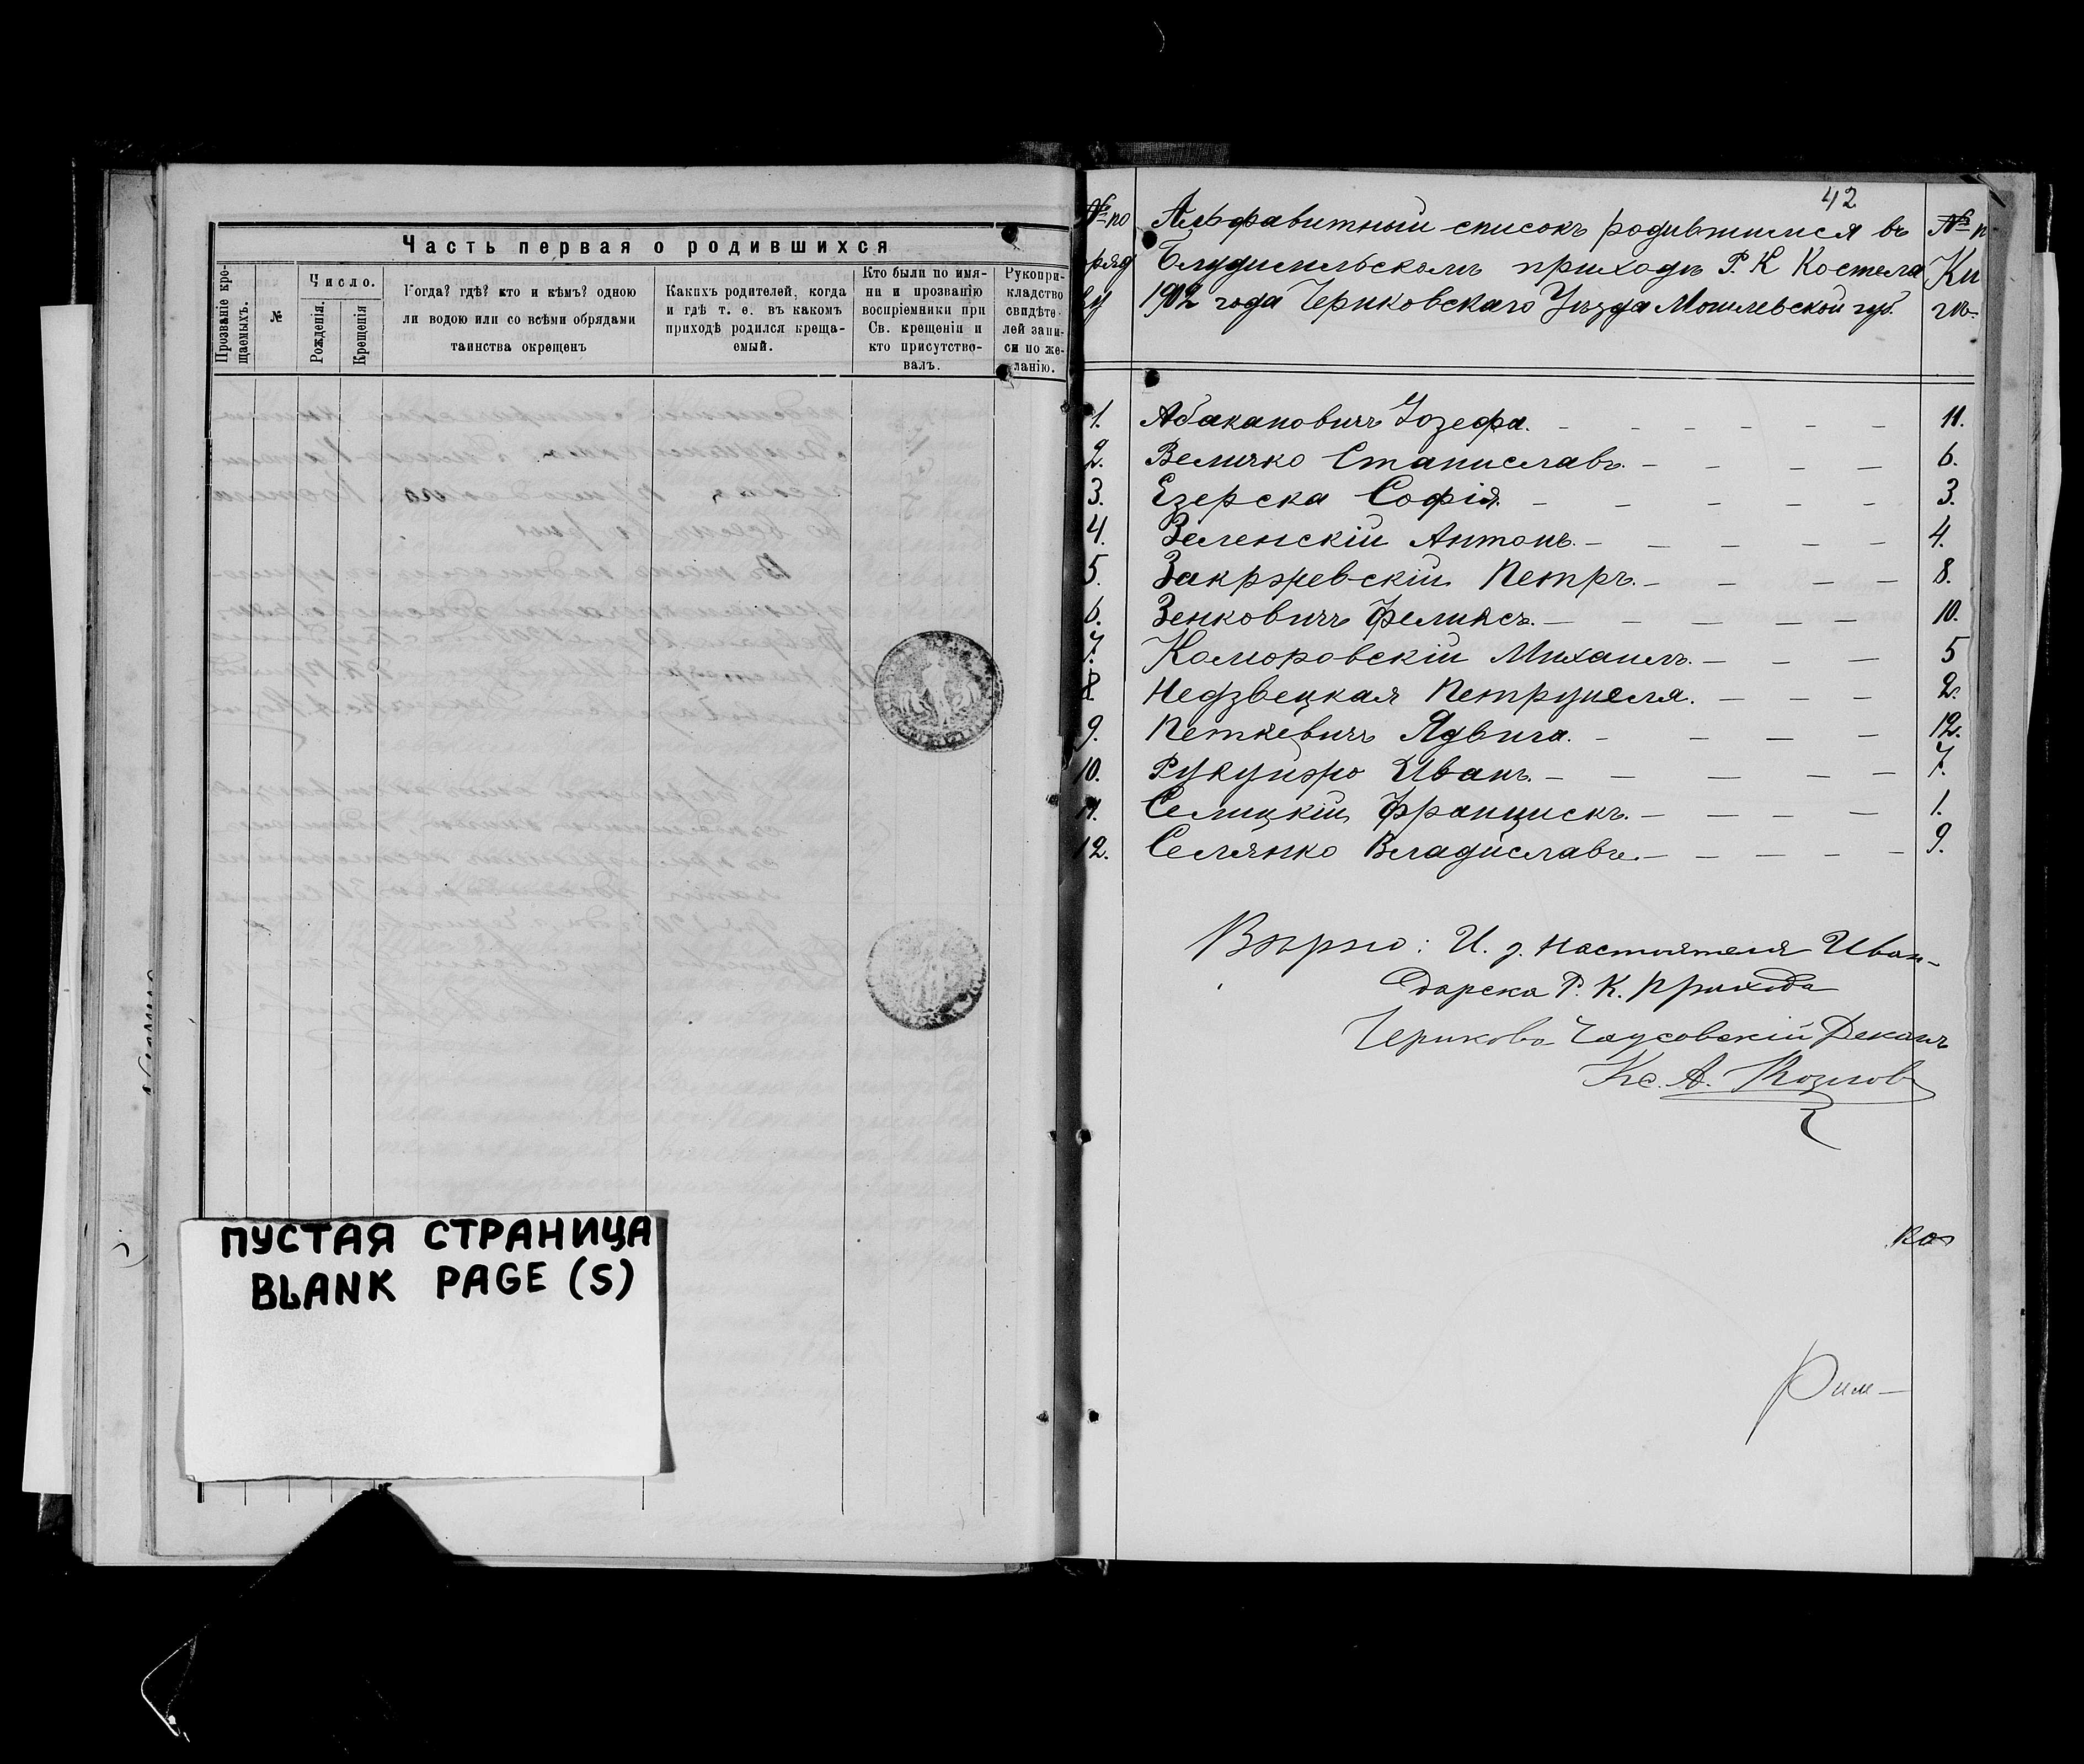 Часть первая о родившихся
Прозваніе кре-
щаемыхъ.
№
Число.
Рожденія.
Крещенія
Когда? гдѣ? кто и кѣмъ? одною
ли водою или со всѣми обрядами
таинства окрещенъ
Какихъ родителей, когда
и гдѣ т. е. въ какомъ
приходѣ родился креща-
емый.
Кто были по имя-
ни и прозванію
воспріемники при
Св. крещеніи и
кто присутство-
валъ.
Рукопри-
кладство
свидѣте-
лей запи-
си по же-
ланію.
ПУСТАЯ СТРАНИЦА
BLANK PAGE (S)
42
№ по
Алфавитный списокъ родившимся въ
приходѣ Р. К Костела
1902 года Чериковскаго Уѣзда Могилевской губ.
1. Абакановичъ Іозефа. 11.
2. Величко Станиславъ. 6.
3. Езерска Софія. 3.
4. Зеленскій Антонъ. 4.
5. Закржевскій Петръ. 8.
6. Зенковичъ Феликсъ. 10.
7. Коморовскій Михаилъ. 5
8 Недзвецкая Петрунеля. 2.
9. Петкевичъ Ядвига. 12.
10. Рукуйжо Иванъ. 7.
11. Селицкій Францискъ. 1.
12. Селянко Владиславъ. 9.
Вѣрно: И. д. Настоятеля Иван-
дарска Р. К. Прихода
Чериково Чаусовскій Деканъ
Кс. А. Козлов
Рим-